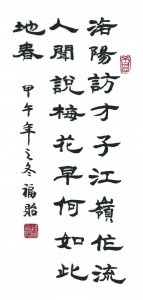 洛陽訪才子江嶺作流
人聞說梅花早何如此
地春
甲午年之冬福貽